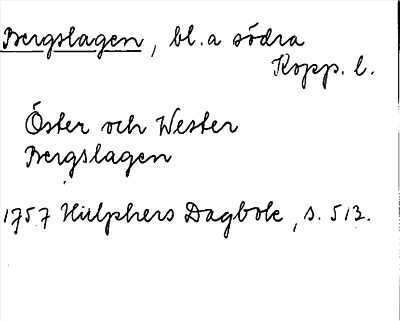 Bergslagen, bl.a södra
Kopp. l.
Öster och Wester
Bergslagen
1757 Hülphers Dagbok, s. 513.